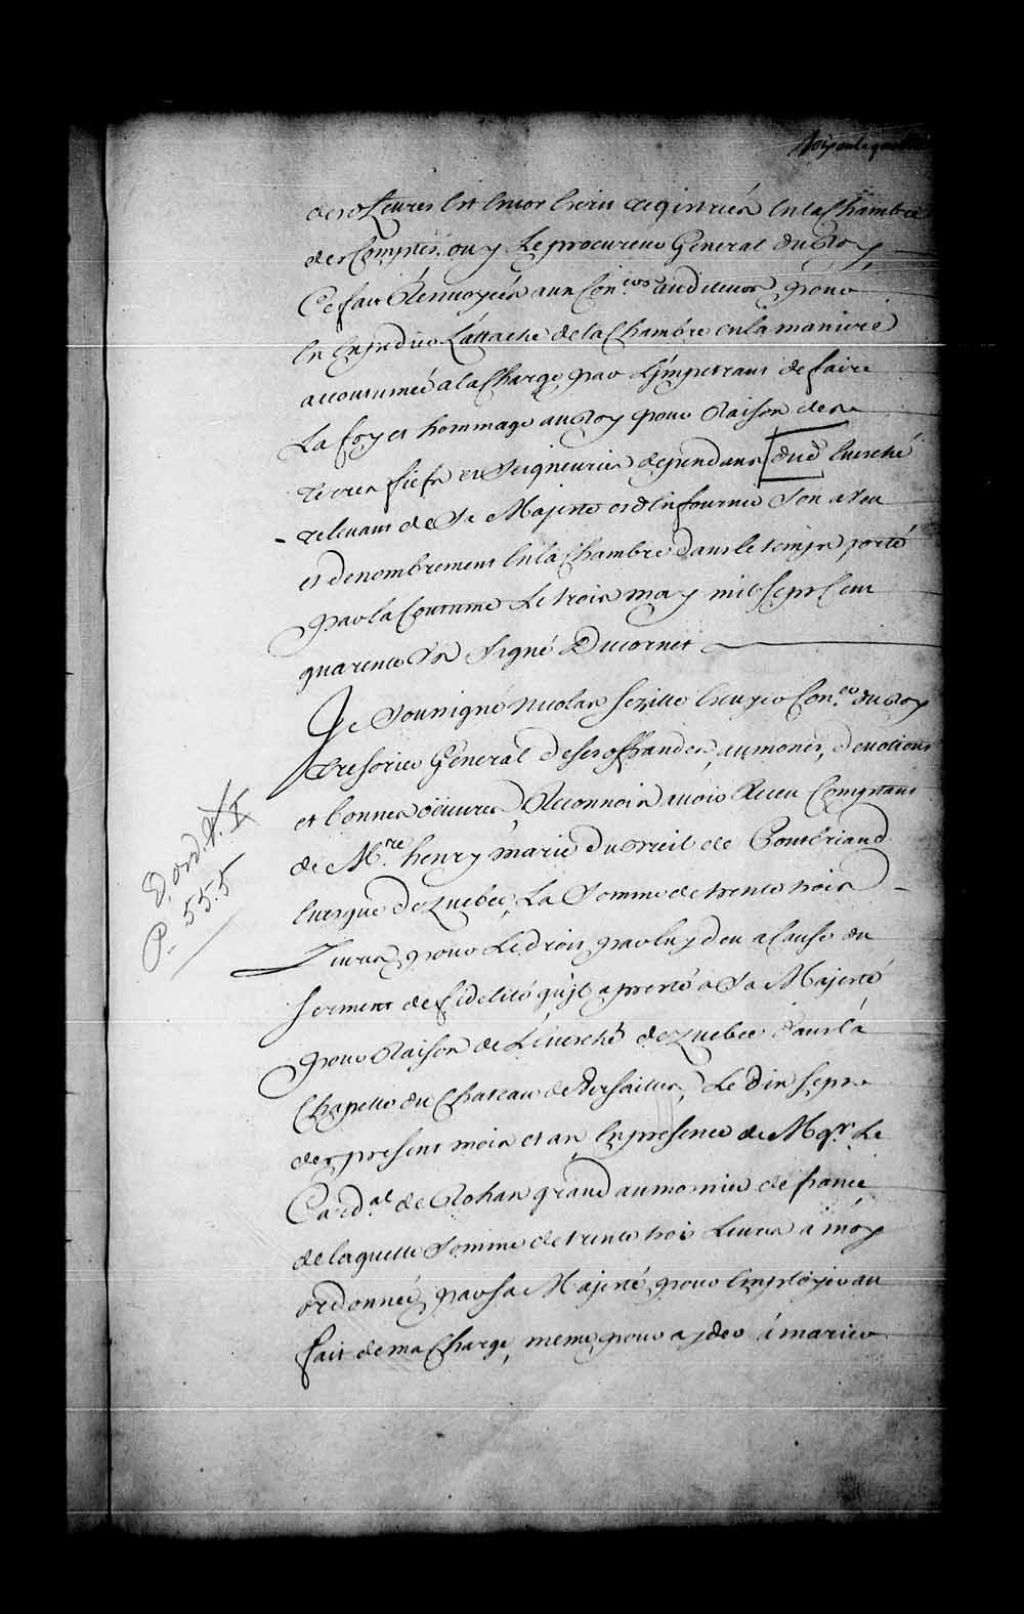 desd. Lettres Est Encor Ecrit registrées En la Chambre
des Comptes, ouy Le procureur General du Roy,
Ce fait Renvoyées aux Con.ers auditeurs, pour
En Expedier L'attache de la Chambre en la maniere
accoutumée a la Charge par L'jmpetrant de faire
La foy et hommage au Roy pour Raison des
terres fiefs et Seigneuries dependans dud Evesché
relevant de Sa Majesté et d'en fournir Son aveu
et denombrement En la Chambre dans le temps porté
par la Coutume Le trois may mil Sept Cent
quarente Signé Ducornet
Je Soussigné Nicolas Sezille Ecuyer Con.er du Roy
Tresorier General de ses offrandes, aumones, devotions
et bonnes oëuvres, Reconnois avoir Receu Comptant
de M.re henry marie Dubreil de Pontbriand
Evesque de Quebec, La Somme de trente trois
Livres, pour Le droit par luy deu a Cause du
serment de fidelité qu'jl a presté a Sa Majesté
pour Raison de L'Evesché de Quebec dans la
Chapelle du Chateau de Versailles, Le dix sept
des present mois et an En presence de Mgr. Le
Card.al de Rohan grand aumonier de france
de laquelle Somme de trente trois Livres a moy
ordonnée, par Sa Majesté, pour Employer au
fait de ma Charge, meme pour ayder á marier
P. 555